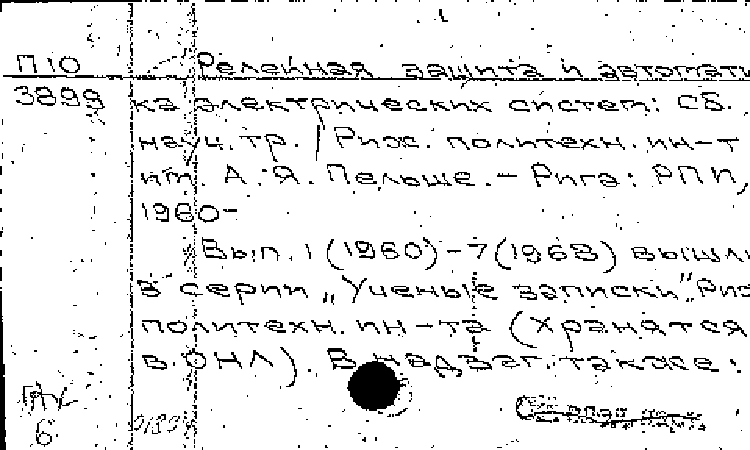 П10
3899
Релейная защита и автомати
ка электрических систем: сб.
науч. тр. / Риж. политехн. ин-т
им. А. Я. Пельше. – Рига: РПИ,
1960-
Вып. 1 (1960) – 7 (1968) вышли
в серии „Ученые записки" Риж
политехн. ин-та (хранятся
в ОНЛ). В надзаг. также:
6